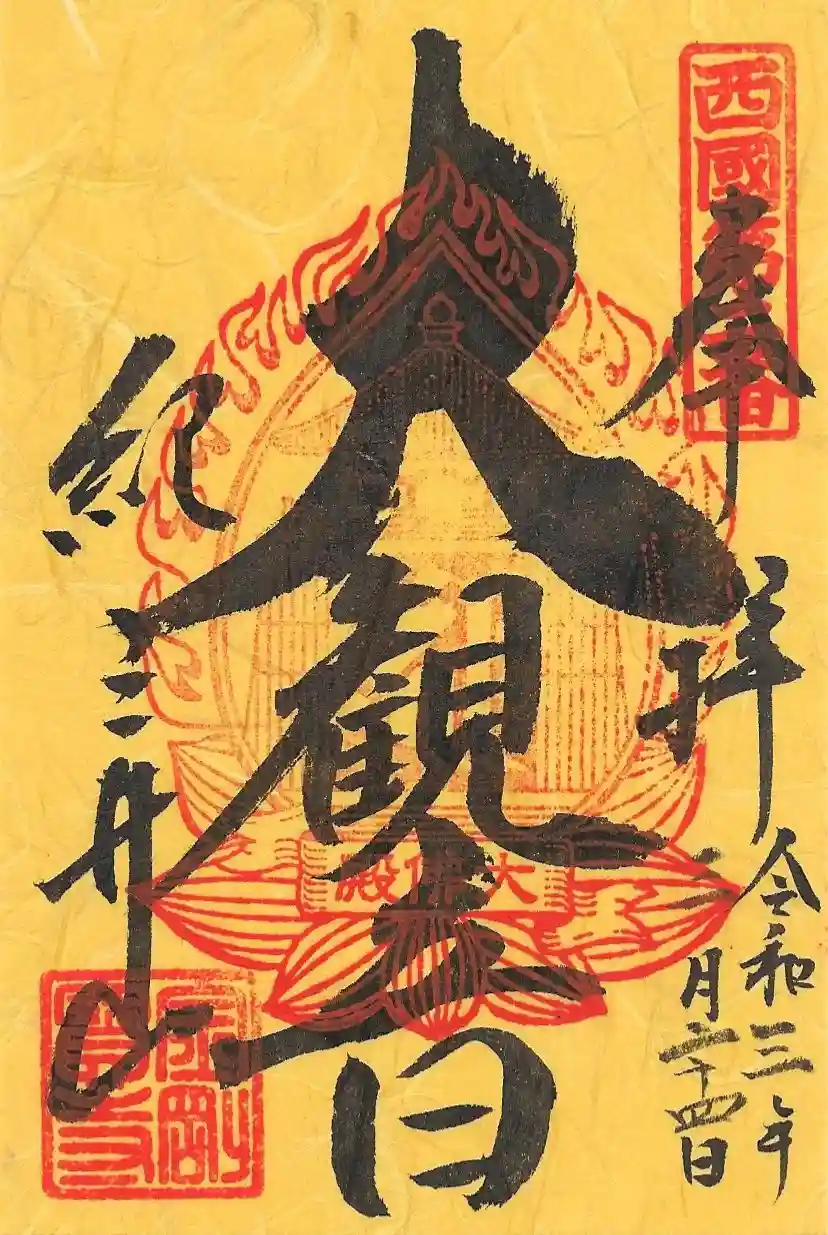 西國第二番
奉拝
令和三年
二月二十四日
大観音
大佛殿
紀三井寺
金剛寶寺